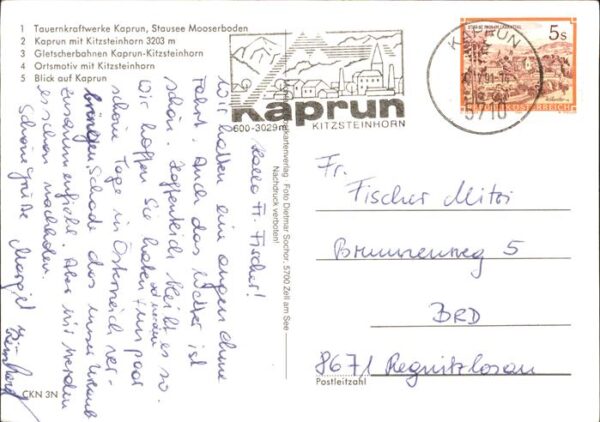 1 Tauernkraftwerke Kaprun, Stausee Mooserboden
2 Kaprun mit Kitzsteinhorn 3203 m
3 Gletscherbahnen Kaprun-Kitzsteinhorn
4 Ortsmotiv mit Kitzsteinhorn
5 Blick auf Kaprun
Kaprun
600-3029m KITZSTEINHORN
KAPRUN
5710
5s
REPUBLIK ÖSTERREICH
Hallo Fr. Fischer!
Wir hatten eine angenehme
Fahrt. Auch das Wetter ist
schön. Hoffentlich bleibt es so.
Wir hoffen Sie haben + ein paar
schöne Tage in Österreich ver-
bringen. Schade das unser Urlaub
zusammenfiehl. Aber wir werden
es schon nachholen.
Schöne Grüße Margit
Fotokartenverlag Foto Dietmar Sochor, 5700 Zell am See
Nachdruck verboten!
Fr.
Fischer Mitzi
Brunnenweg 5
BRD
8671 Regnitzlosau
Postleitzahl
CKN 3N